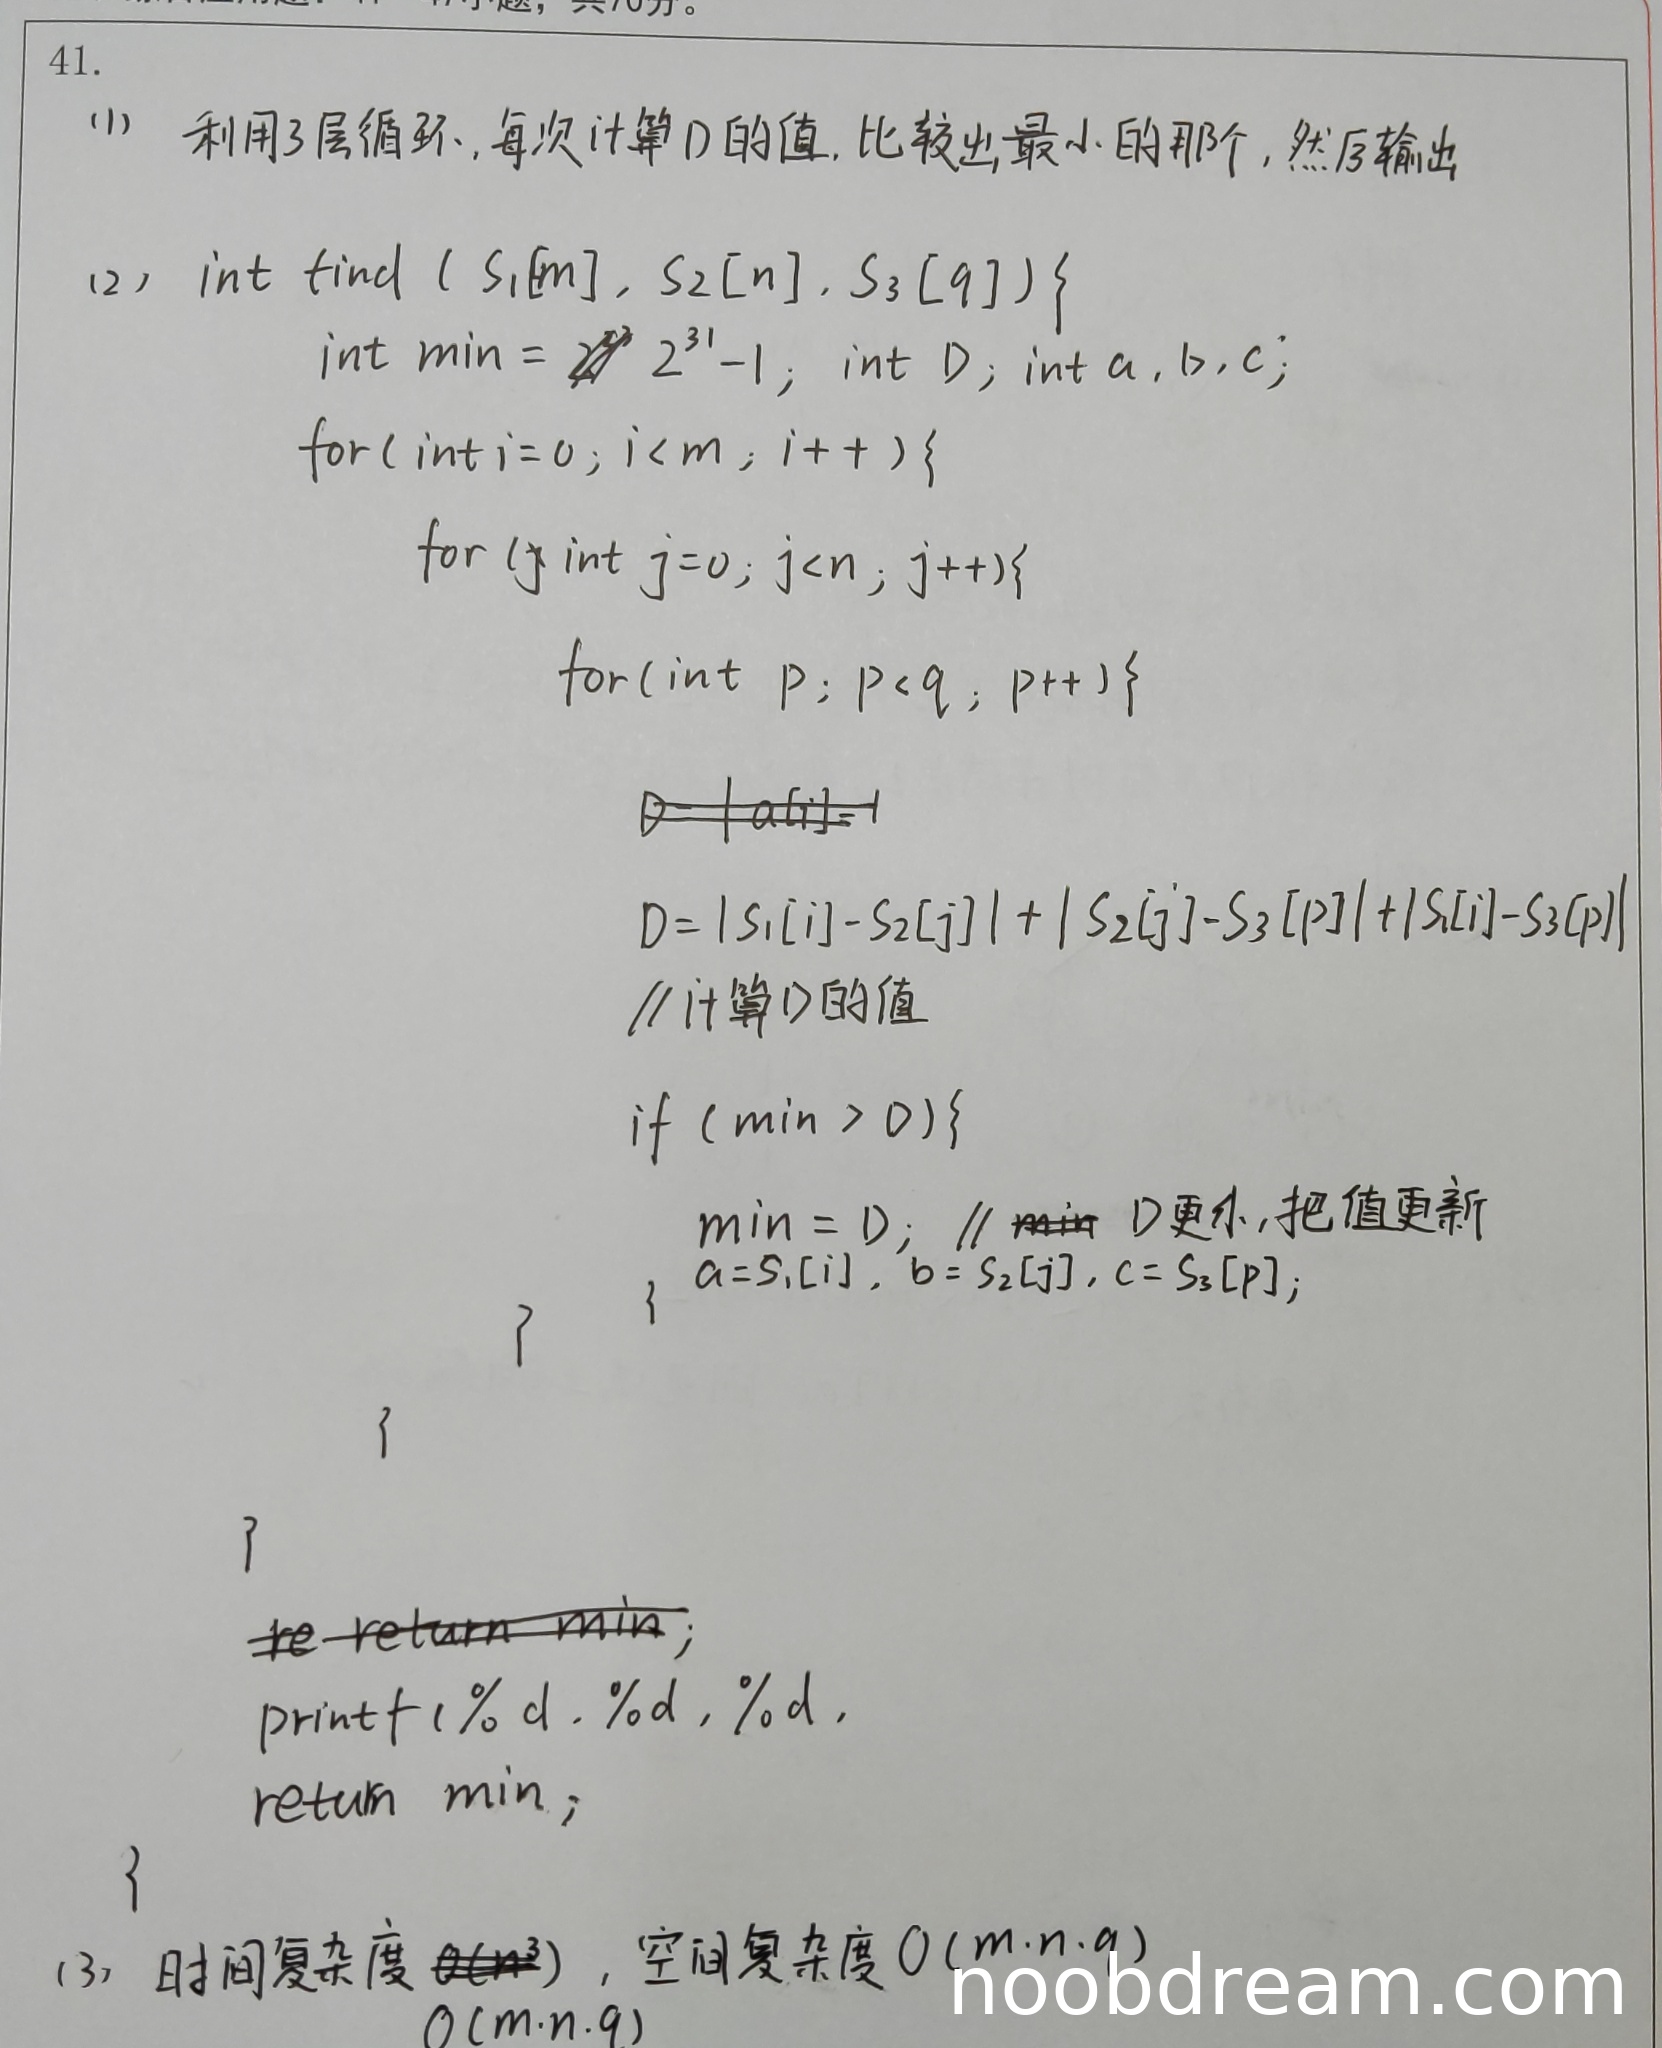 小题，共70分。
41.
(1) 利用3层循环，每次计算D的值，比较出最小的那个，然后输出
(2) int find ( S₁[m], S₂[n], S₃[q]){
int min = 2³¹-1; int D; int a, b, c;
for( int i=0; i<m; i++ ){
for ( int j=0; j<n; j++){
for( int p; p<q; p++){
D= | a[i]- |
D= |S₁[i]-S₂[j]| + |S₂[j]-S₃[p]|+|S₁[i]-S₃[p]|
//计算D的值
if ( min > D){
min = D; // min D更小，把值更新
a=S₁[i], b=S₂[j], c=S₃[p];
}
}
}
}
re return min;
printf(%d, %d, %d,
return min;
}
(3) 时间复杂度 O(n³) , 空间复杂度 O(m·n·q)
O(m·n·q)
noobdream.com